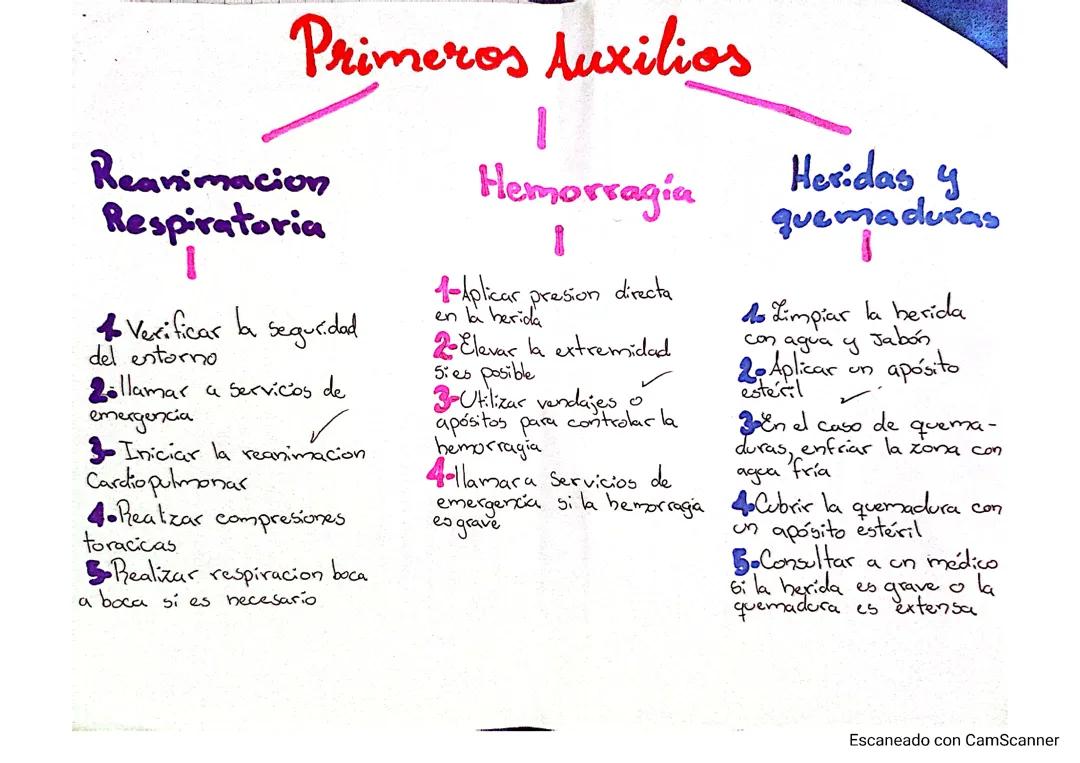 Primeros Auxilios
Reanimacion
Respiratoria
1- Verificar la seguridad
del entorno
2-llamar a servicios de
emergencia
3- Iniciar la reanimacion
Cardiopulmonar
4-Realizar compresiones
toracicas
5-Realizar respiracion boca
a boca si es necesario
Hemorragía
1-Aplicar presion directa
en la herida
2-Elevar la extremidad
si es posible
3-Utilizar vendajes o
apósitos para controlar la
hemorragia
4-llamar a servicios de
emergencia si la hemorragia
es grave
Heridas y
quemaduras
1- Limpiar la herida
con agua y Jabón
2-Aplicar un apósito
estéril
3-En el caso de quema-
duras, enfriar la zona con
agua fría
4-Cubrir la quemadura con
un apósito estéril
5-Consultar a un médico
si la herida es grave o la
quemadura es extensa
Escaneado con CamScanner